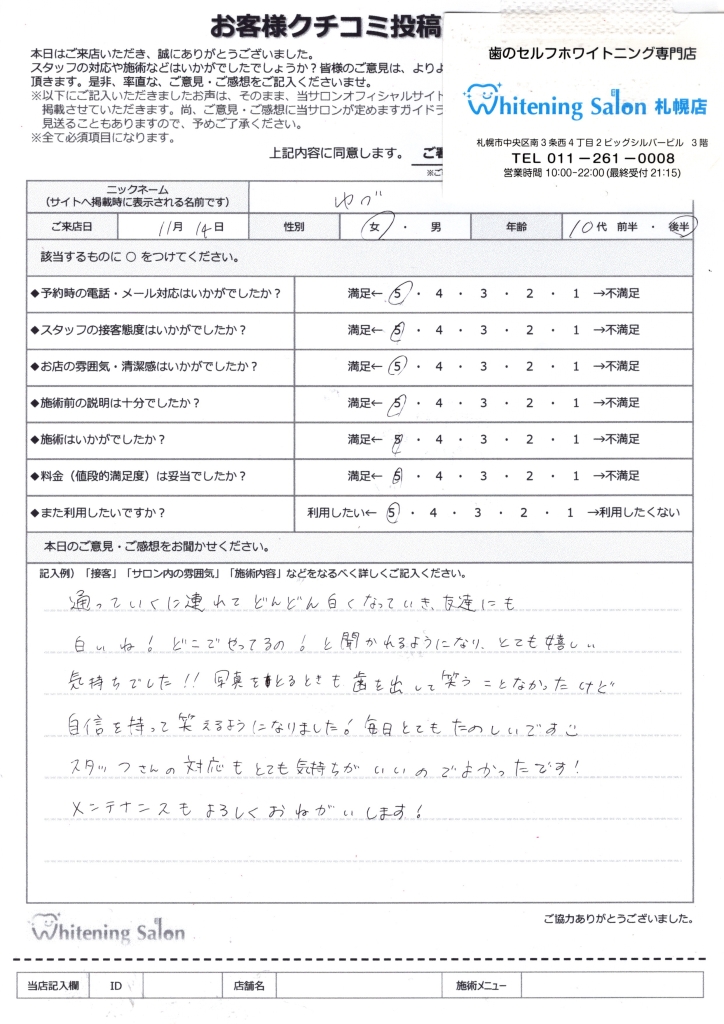 お客様クチコミ投稿
本日はご来店いただき、誠にありがとうございました。
スタッフの対応や施術などはいかがでしたでしょうか?皆様のご意見は、よりよ
頂きます。是非、率直な、ご意見・ご感想をご記入くださいませ。
※以下にご記入いただきましたお声は、そのまま、当サロンオフィシャルサイト
掲載させていただきます。尚、ご意見・ご感想に当サロンが定めますガイドラ
見送ることもありますので、予めご了承ください。
※全て必須項目になります。
上記内容に同意します。 ご署
※ご
歯のセルフホワイトニング専門店
Whitening Salon 札幌店
札幌市中央区南3条西4丁目2ビッグシルバービル 3階
TEL 011-261-0008
営業時間 10:00-22:00(最終受付 21:15)
ニックネーム
(サイトへ掲載時に表示される名前です)
ご来店日 11月 14日 性別 女 ・ 男 年齢 10代 前半 ・ 後半
該当するものに ○ をつけてください。
◆予約時の電話・メール対応はいかがでしたか? 満足← 5 ・ 4 ・ 3 ・ 2 ・ 1 →不満足
◆スタッフの接客態度はいかがでしたか? 満足← 5 ・ 4 ・ 3 ・ 2 ・ 1 →不満足
◆お店の雰囲気・清潔感はいかがでしたか? 満足← 5 ・ 4 ・ 3 ・ 2 ・ 1 →不満足
◆施術前の説明は十分でしたか? 満足← 5 ・ 4 ・ 3 ・ 2 ・ 1 →不満足
◆施術はいかがでしたか? 満足← 5 ・ 4 ・ 3 ・ 2 ・ 1 →不満足
◆料金(値段的満足度)は妥当でしたか? 満足← 5 ・ 4 ・ 3 ・ 2 ・ 1 →不満足
◆また利用したいですか? 利用したい← 5 ・ 4 ・ 3 ・ 2 ・ 1 →利用したくない
本日のご意見・ご感想をお聞かせください。
記入例)「接客」「サロン内の雰囲気」「施術内容」などをなるべく詳しくご記入ください。
通っていくに連れてどんどん白くなっていき、友達にも
白いね!どこでやってるの!と聞かれるようになり、とても嬉しい
気持ちでした!!写真をとるときも歯を出して笑うことなかったけど
自信を持って笑えるようになりました!毎日とてもたのしいです
スタッフさんの対応もとても気持ちがいいのでよかったです!
メンテナンスもよろしくおねがいします!
Whitening Salon
ご協力ありがとうございました。
当店記入欄 ID 店舗名 施術メニュー